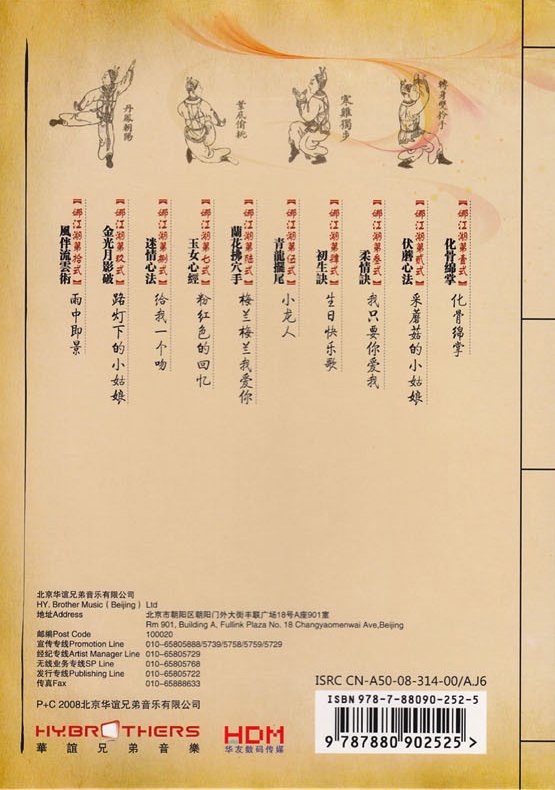 丹鳳朝陽
葉底偷桃
寒雞獨步
轉身雙扲手
【娜江湖第壹式】
化骨綿掌
化骨绵掌
【娜江湖第贰式】
伏蘑心法
采蘑菇的小姑娘
【娜江湖第叁式】
柔情訣
我只要你爱我
【娜江湖第肆式】
初生訣
生日快乐歌
【娜江湖第伍式】
青龍擺尾
小龙人
【娜江湖第陆式】
蘭花拂穴手
梅兰梅兰我爱你
【娜江湖第七式】
玉女心經
粉红色的回忆
【娜江湖第捌式】
迷情心法
给我一个吻
【娜江湖第玖式】
金光月影破
路灯下的小姑娘
【娜江湖第拾式】
風伴流雲術
雨中即景
北京华谊兄弟音乐有限公司
HY. Brother Music ( Beijing ) Ltd
地址Address 北京市朝阳区朝阳门外大街丰联广场18号A座901室
Rm 901, Building A, Fullink Plaza No. 18 Changyaomenwai Ave,Beijing
邮编Post Code 100020
宣传专线Promotion Line 010–65805888/5739/5758/5759/5729
经纪专线Artist Manager Line 010–65805729
无线业务专线SP Line 010–65805768
发行专线Publishing Line 010–65805722
传真Fax 010–65888633
P+C 2008北京华谊兄弟音乐有限公司
HY.BROTHERS
華誼兄弟音樂
HDM
华友数码传媒
ISRC CN-A50-08-314-00/A.J6
ISBN 978-7-88090-252-5
9 787880 902525